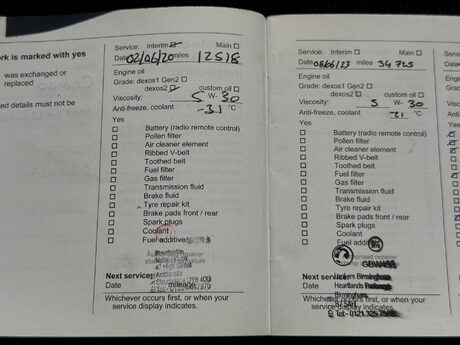 rk is marked with yes
was exchanged or
replaced
ed details must not be
Service: Interim Main
Date 02/06/20 miles 12518
Engine oil
Grade: dexos1 Gen2
dexos2 custom oil
Viscosity: 5 W- 30
Anti-freeze, coolant -31 °C
Yes
Battery (radio remote control)
Pollen filter
Air cleaner element
Ribbed V-belt
Toothed belt
Fuel filter
Gas filter
Transmission fluid
Brake fluid
Tyre repair kit
Brake pads front / rear
Spark plugs
Coolant
Fuel additive
Next service:
Date mileage
Whichever occurs first, or when your
service display indicates.
Service: Interim Main
Date 06/06/23 miles 34725
Engine oil
Grade: dexos1 Gen2
dexos2 custom oil
Viscosity: 5 W- 30
Anti-freeze, coolant °C
Yes
Battery (radio remote control)
Pollen filter
Air cleaner element
Ribbed V-belt
Toothed belt
Fuel filter
Gas filter
Transmission fluid
Brake fluid
Tyre repair kit
Brake pads front / rear
Spark plugs
Coolant
Fuel additive
Next service:
Birmingham
Date Heartlands
Birmingham
Whichever occurs first, or when your
service display indicates.